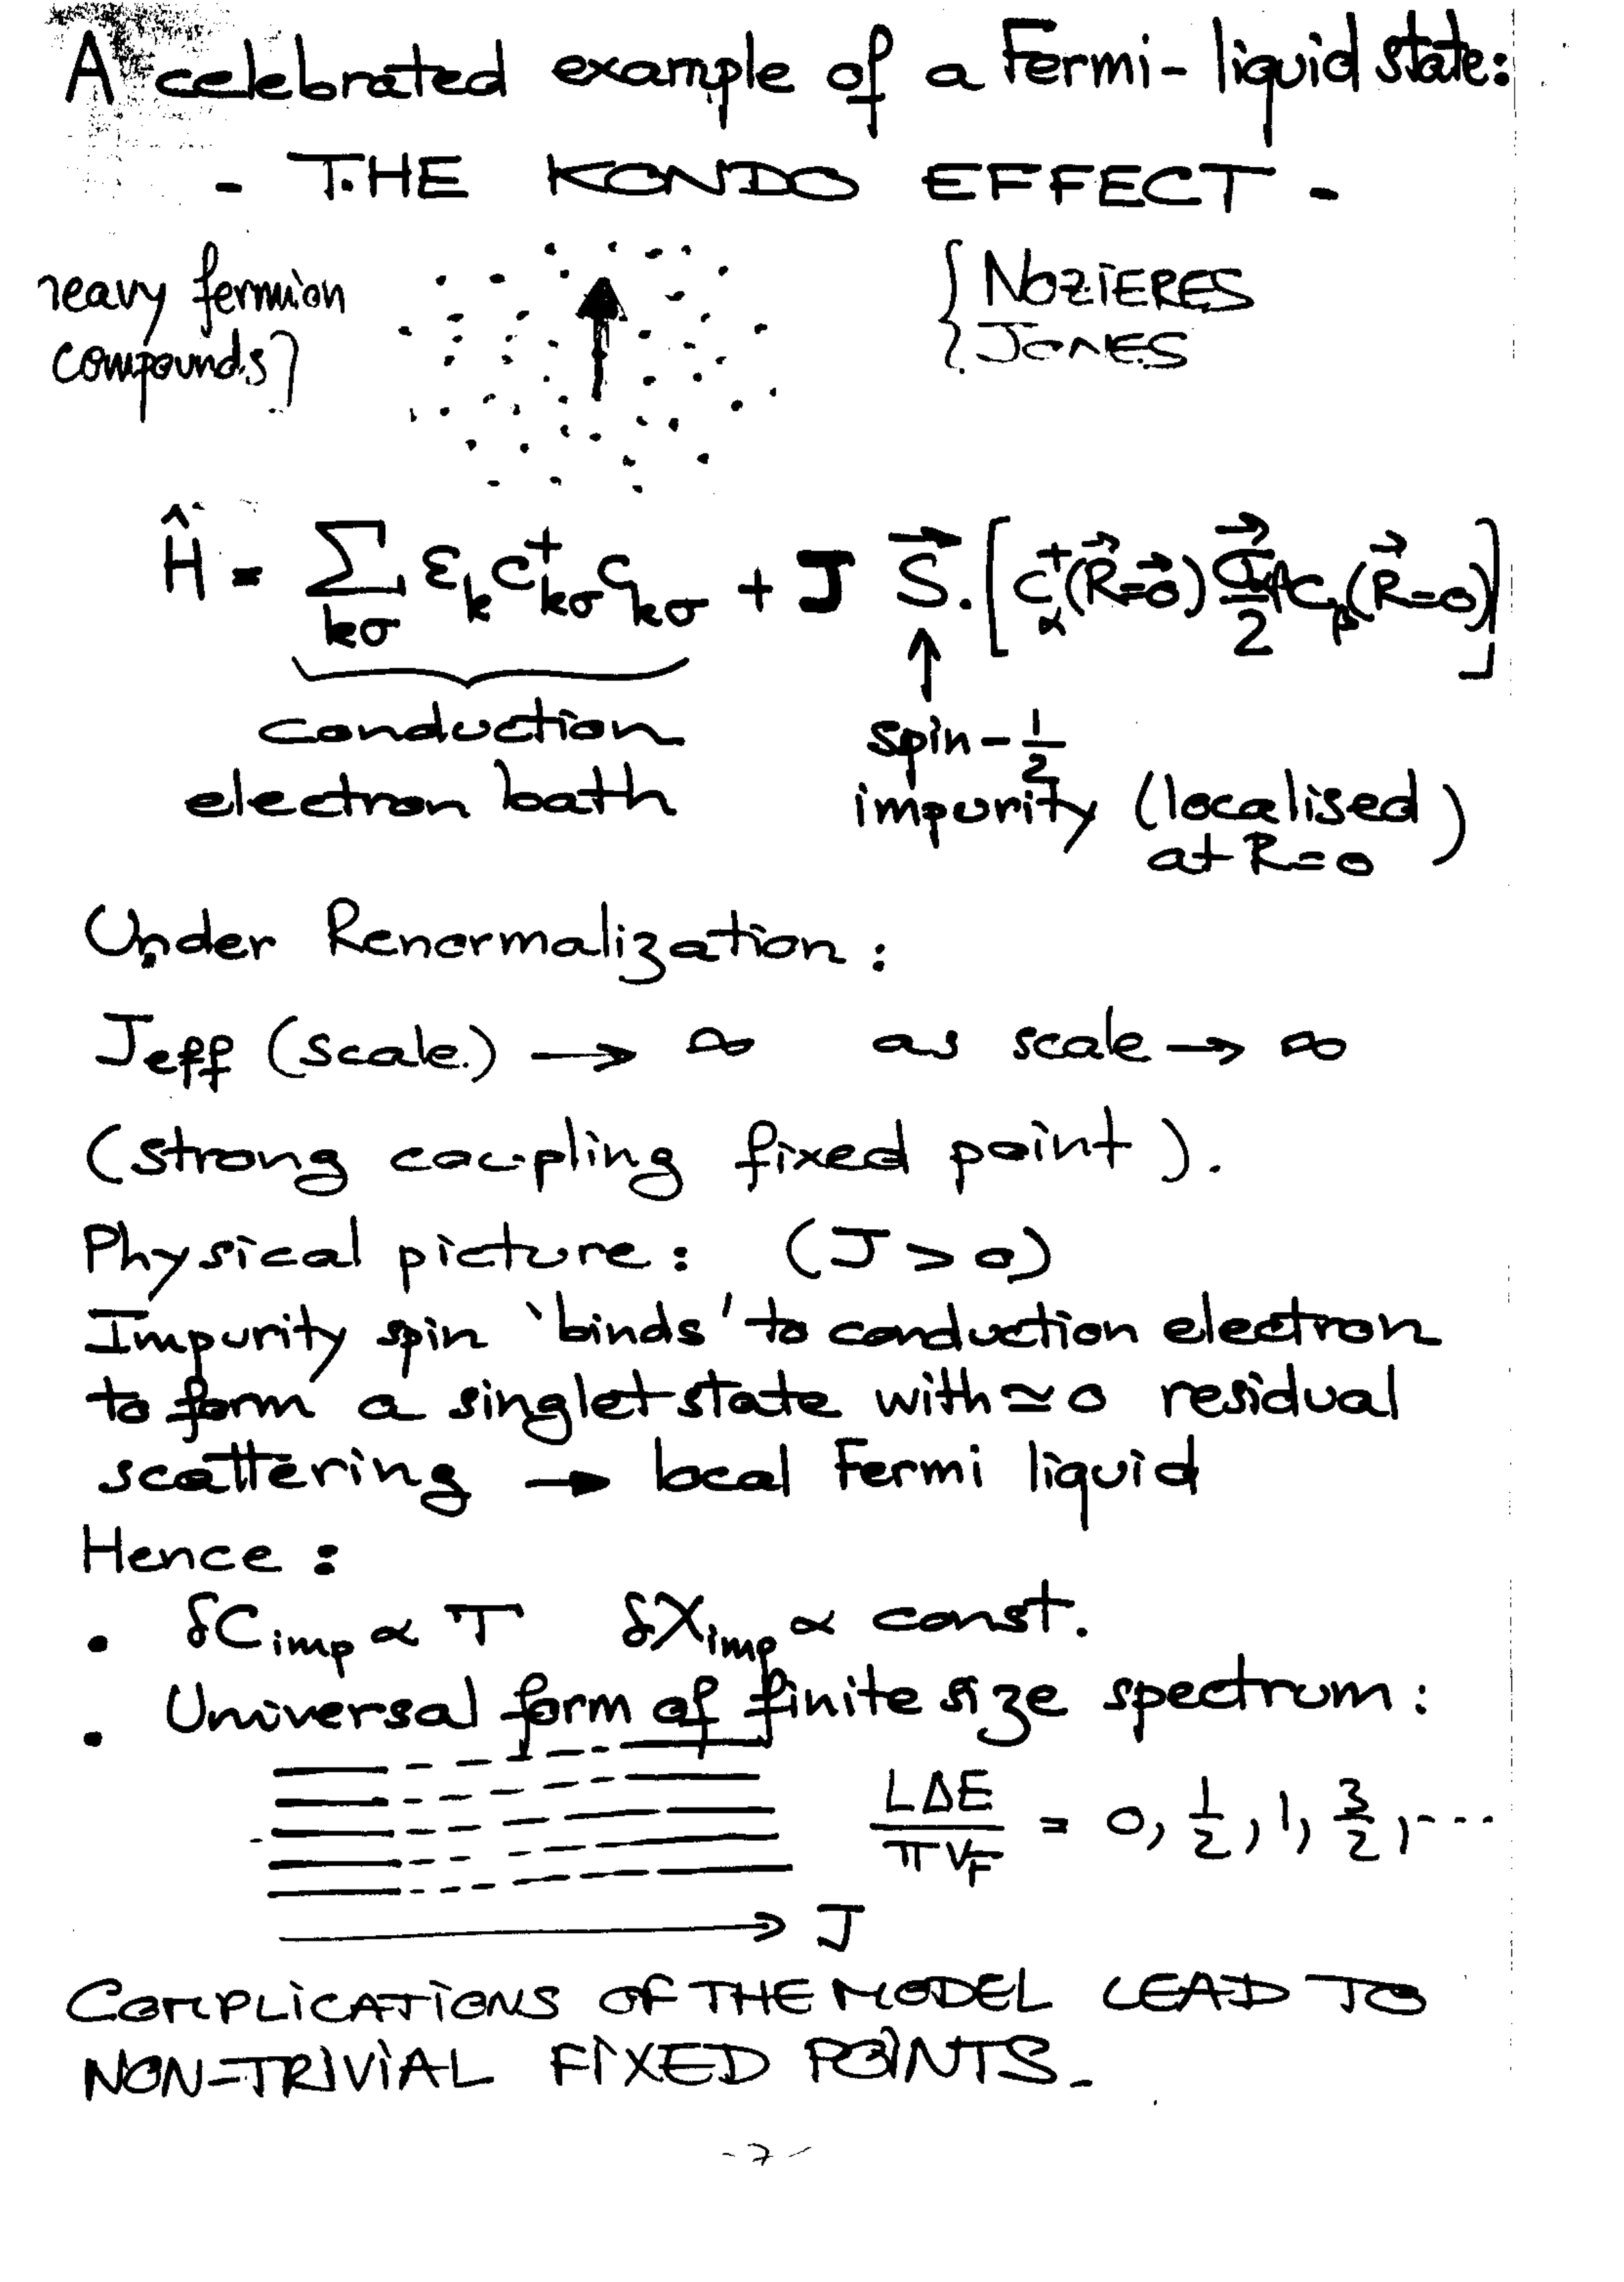 A celebrated example of a Fermi-liquid state:
- THE KONDO EFFECT -
heavy fermion
compounds}
{ NOZIERES
JONES
Ĥ = ∑_{kσ} ε_k c⁺_{kσ} c_{kσ} + J S⃗ . [c⁺_α(R⃗=0⃗) σ⃗/2 c_β(R⃗=0)]
conduction
electron bath
↑
spin-1/2
impurity (localised
at R=0)
Under Renormalization:
Jeff (scale) → ∞ as scale → ∞
(strong coupling fixed point).
Physical picture: (J > 0)
Impurity spin 'binds' to conduction electron
to form a singlet state with ≃ 0 residual
scattering → local Fermi liquid
Hence:
• δC_imp ∝ T δχ_imp ∝ const.
• Universal form of finite size spectrum:
LΔE/πv_F = 0, 1/2, 1, 3/2, ...
→ J
COMPLICATIONS OF THE MODEL LEAD TO
NON-TRIVIAL FIXED POINTS.
-7-